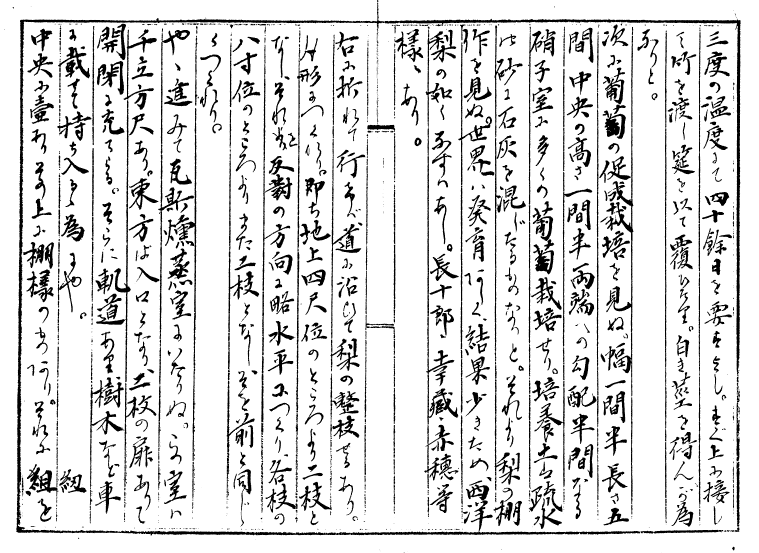 三度の温度にて四十餘日を要すとし。すぐ上に接し
て竹を渡し筵を以て覆ひたり。白き莖を得んが為
なりと。
次に葡萄の促成栽培を見ぬ。幅一間半長さ五
間、中央の高さ一間半、両端への勾配半間なる
硝子室に多くの葡萄栽培せり。培養土は疏水
は砂に石灰を混じたるものなりと。それより梨の棚
作を見ぬ。世界一は発育あしく、結果少きため西洋
梨の如くなすはあし。長十郎、幸藏、赤穂等
様々あり。
右に折れて行けば道に沿ひて梨の整枝せるあり。
形につくれり。即ち地上四尺位のところより二枝と
なし、それを反對の方向に略水平につくり、各枝の
八寸位のところよりまた二枝となし、前と同じ
くつくれり。
やゝ進みて瓦斯燻蒸室にいたりぬ。この室は
千立方尺あり。東方は入口となり、二枚の扉ありて
開閉に充てらる。そこに軌道あり樹木など車
に載せて持ち入る為にや。 紐
中央に壺ありその上に棚様のものあり。それに組を